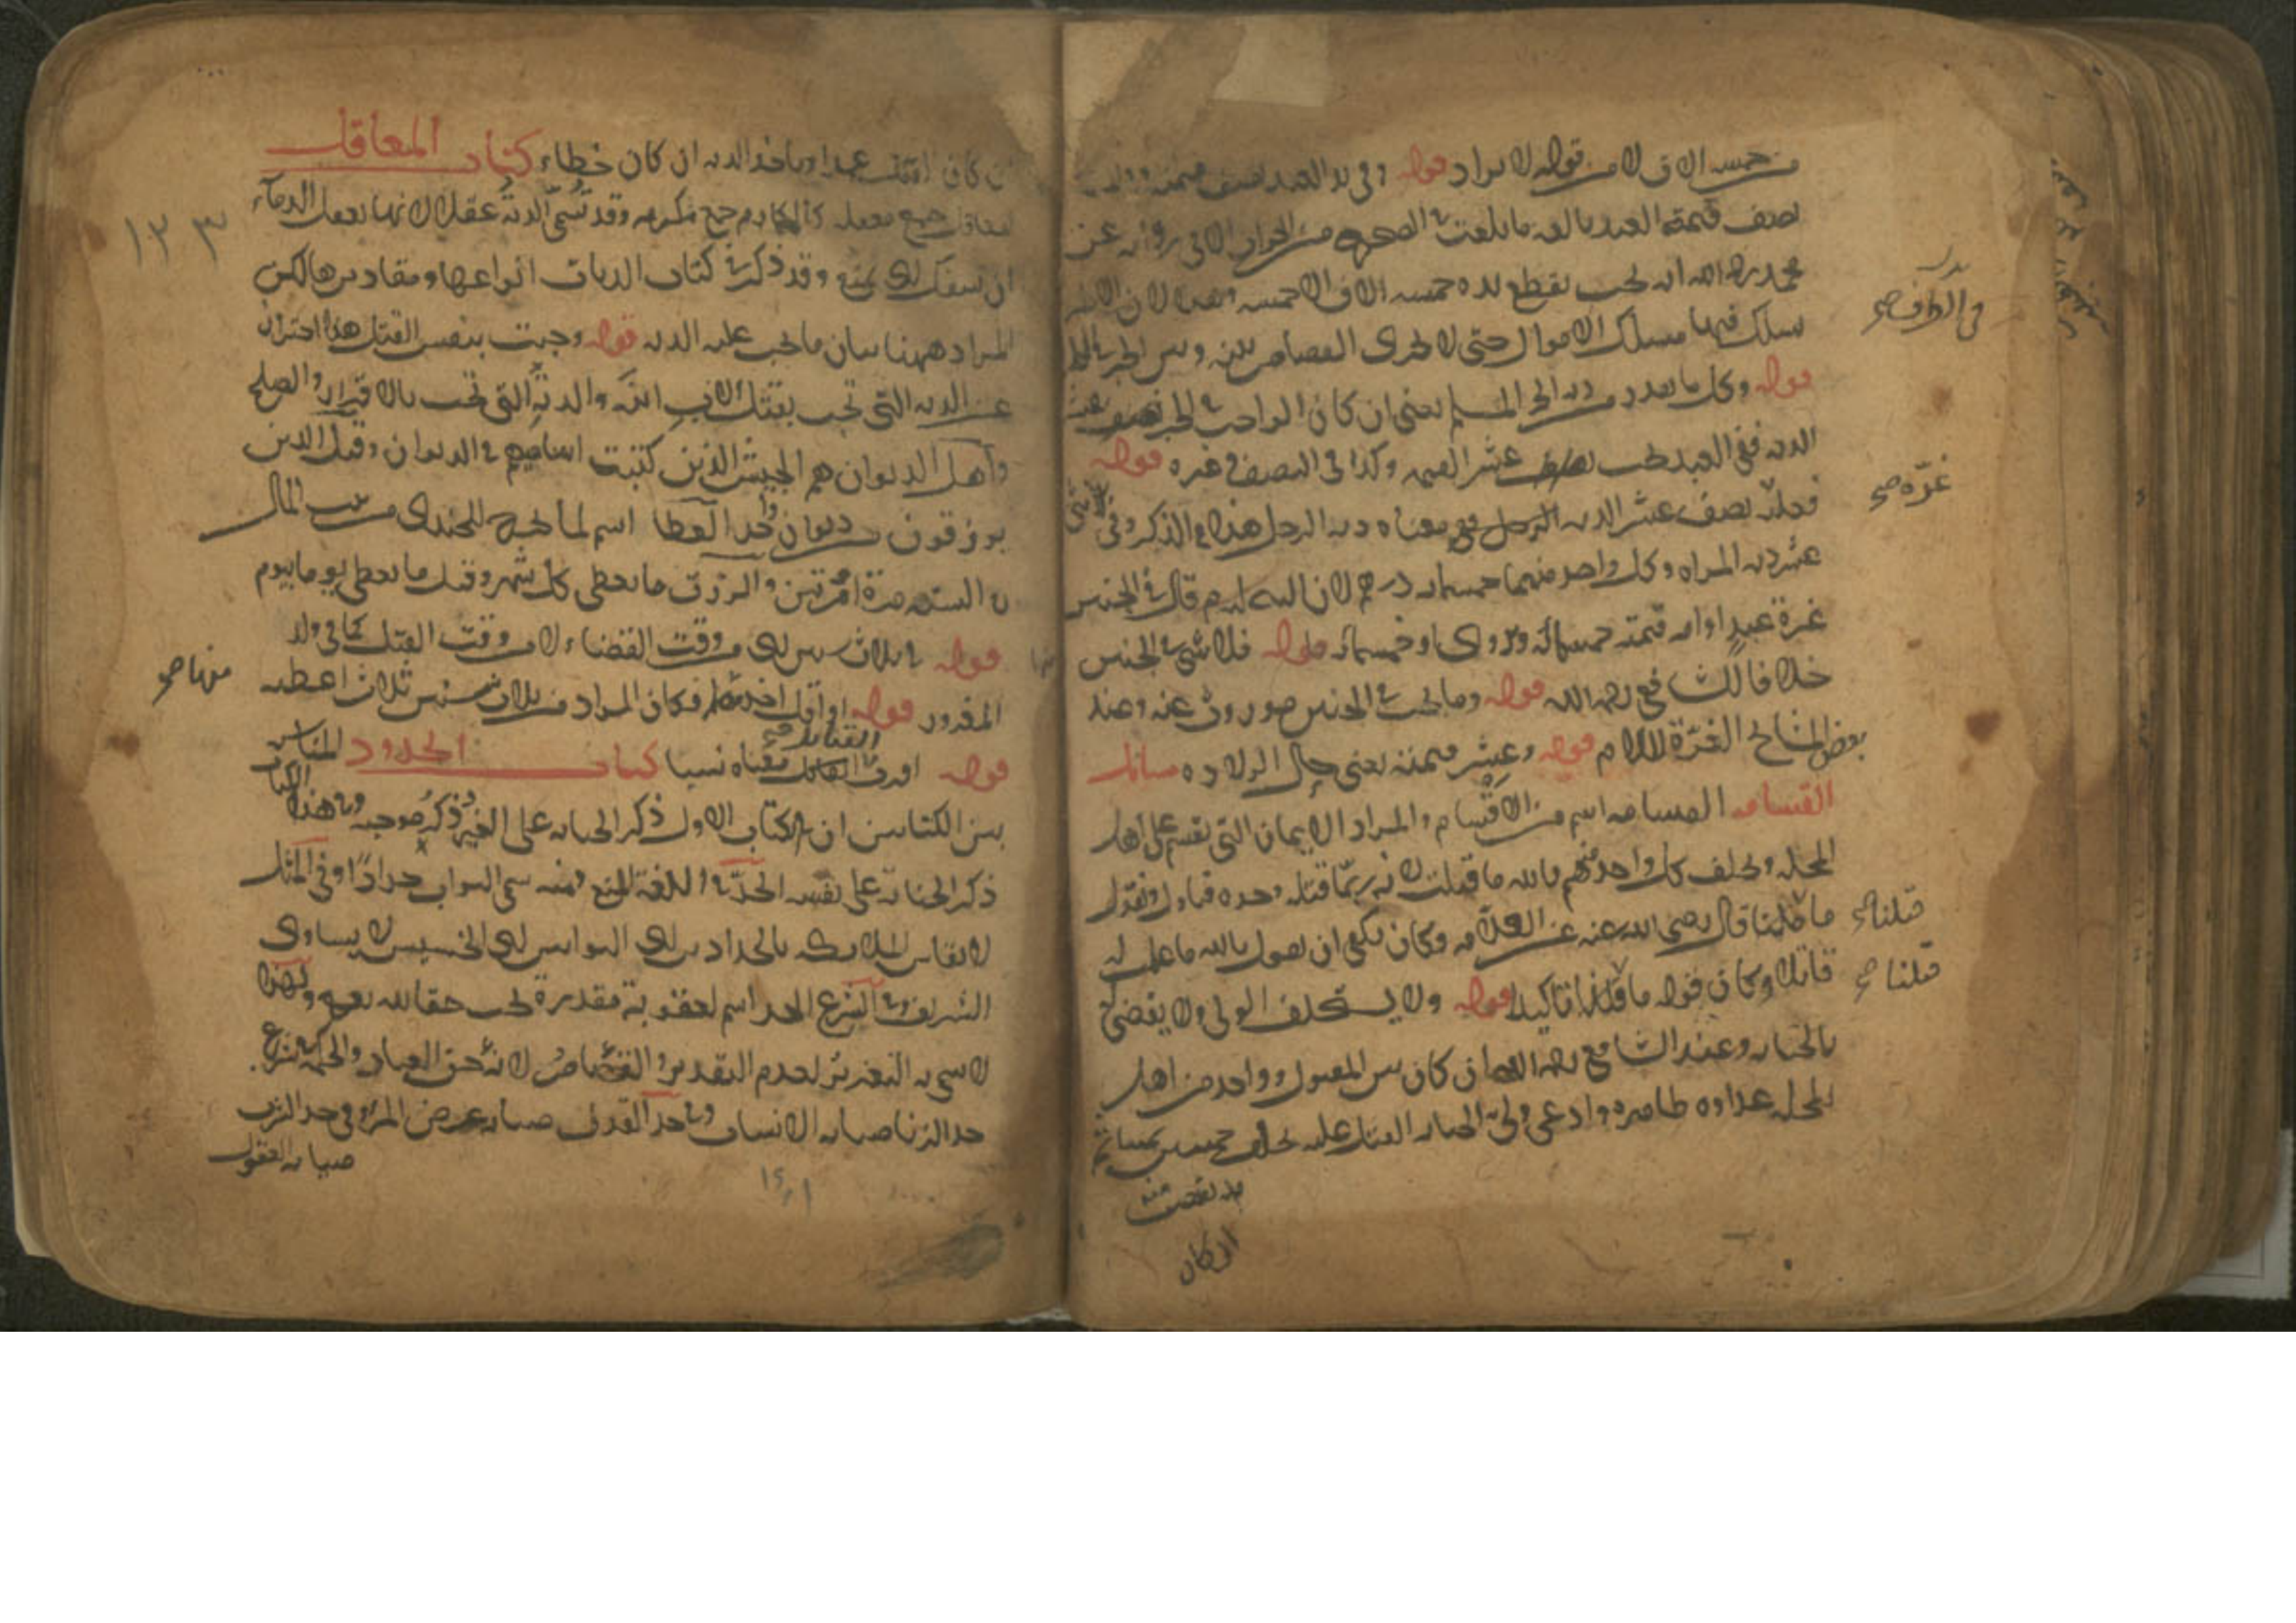 من خمسة الاف لا من قوله لا يزاد قوله وفي يد العبد نصف قيمته
نصف قيمة العبد بالغة ما بلغت في الصحيح من الجواب الا في رواية عن
محمد رحمه الله انه يجب بقطع يده خمسة الاف الا خمسة وهذا لان
يسلك فيها مسلك الاموال حتى لا يجري القصاص بينه وبين الحر
قوله وكل ما يقدر من دية الحر المسلم يعني ان كان الواجب في الحر نصف عشر
الدية ففي العبد يجب نصف عشر القيمة وكذا في النصف وغيره قوله
فعليه نصف عشر الدية الرجل معناه دية الرجل هذا في الذكر وفي الانثى
عشر دية المراة وكل واحد منهما خمسمائة درهم لان النبي عليه السلام قال في الجنين
غرة عبد او امة قيمته خمسمائة ويروى او خمسمائة قوله فلا شيء في الجنين
خلافا للشافعي رحمه الله قوله وما يجب في الجنين موروث عنه وعند
بعض المشايخ الغرة للام قوله وعشر قيمته يعني حال الولادة مسائل
القسامة القسامة اسم من الاقسام والمراد الايمان التي تقسم على اهل
المحلة ويحلف كل واحد منهم بالله ما قتلت لانه ربما قتله وحده فياول ويقول
ما قتلنا قال رضي الله عنه عن العلامة وكان يكفي ان يقول بالله ما علمت له
قاتلا وكان قوله ما قتلنا تاكيدا قوله ولا يستحلف الولي ولا يقضى
بالجناية وعند الشافعي رحمه الله ان كان بين المقتول وواحد من اهل
المحلة عداوة ظاهرة وادعى ولي الجناية القتل عليه يحلف خمسين يمينا ثم
يقتص منه
ان كان
غرة صح
قتلنا صح
قتلنا صح
ان كان القتل عمدا وياخذ الدية ان كان خطاء كتاب المعاقل
المعاقل جمع معقلة كالمكارم جمع مكرمة وقد تسمى الدية عقلا لانها تعقل الدماء
ان تسفك اي تمنع وقد ذكر في كتاب الديات انواعها ومقاديرها لكن
المراد ههنا بيان من يجب عليه الدية قوله وجبت بنفس القتل هذا احتراز
عن الدية التي تجب بقتل الاب ابنه والدية التي تجب بالاقرار والصلح
واهل الديوان هم الجيش الذين كتبت اساميهم في الديوان وقيل الذين
يرزقون من ديوان واحد العطا اسم لما يخرج للجندي من بيت المال
في السنة مرة او مرتين والرزق ما يعطى كل شهر وقيل ما يعطى يوما بيوم
قوله في ثلاث سنين اي من وقت القضاء لا من وقت القتل كما في ولد
المغرور قوله او اقل اخذ منها فكان المراد من ثلاث سنين ثلاث اعطية
قوله اقرب القبائل معناه نسبا كتاب الحدود المناسبة
بين الكتابين ان في الكتاب الاول ذكر الجناية على الغير وذكر موجبه وفي هذا الكتاب
ذكر الجناية على نفسه الحد في اللغة المنع ومنه سمي البواب حدادا وفي المثل
لا تقاس الملائكة بالحدادين اي البوابين اي الخسيس لا يساوي
الشريف وفي الشرع الحد اسم لعقوبة مقدرة تجب حقا لله تعالى ولهذا
لا يسمى به التعزير لعدم التقدير والقصاص لانه حق العباد والحكمة في شرع
حد الزنا صيانة الانساب وفي حد القذف صيانة عرض المرء وفي حد الشرب
صيانة العقول
منها صح
١٢٣